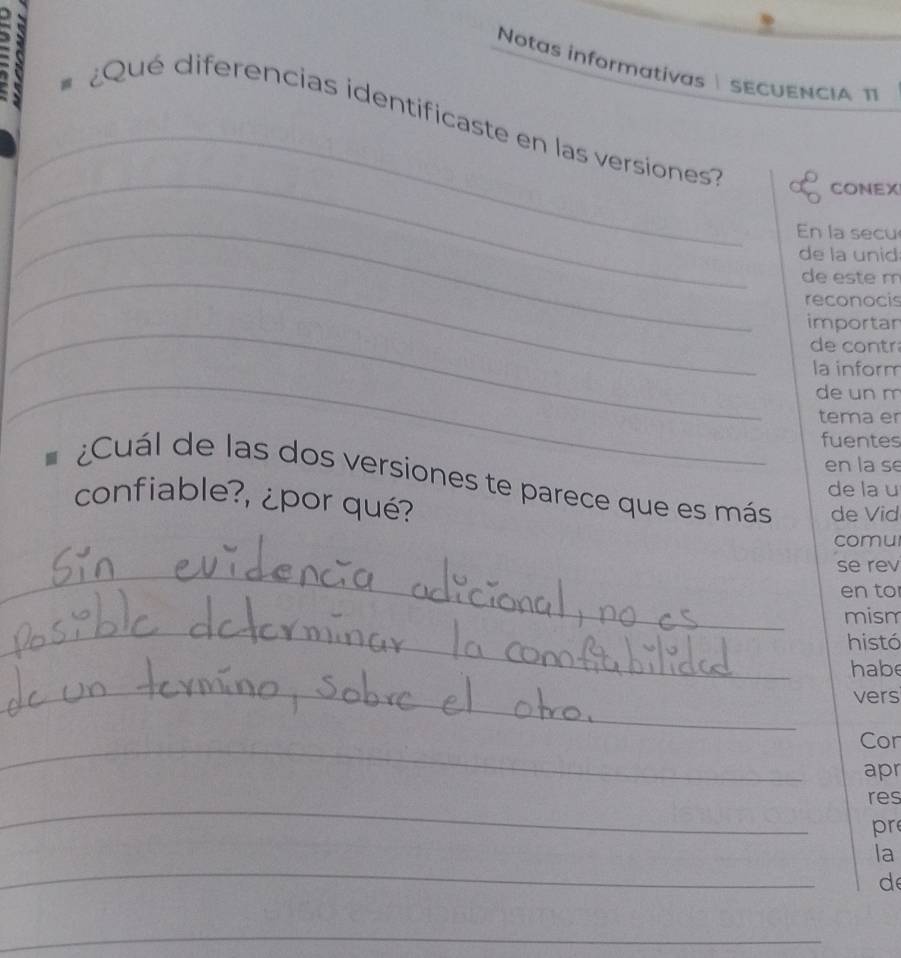 Notas informativas | SECUENCIA 11
¿Qué diferencias identificaste en las versiones?
¿Cuál de las dos versiones te parece que es más
confiable?, ¿por qué?
Sin evidencia adicional, no es
posible determinar la comfiabilided
de un termino, sobre el otro.
CONEX
En la secu
de la unid
de este m
reconocis
importan
de contra
la inform
de un m
tema en
fuentes
en la se
de la u
de Vid
comu
se rev
en to
mism
histó
habe
vers
Con
apr
res
pre
la
de